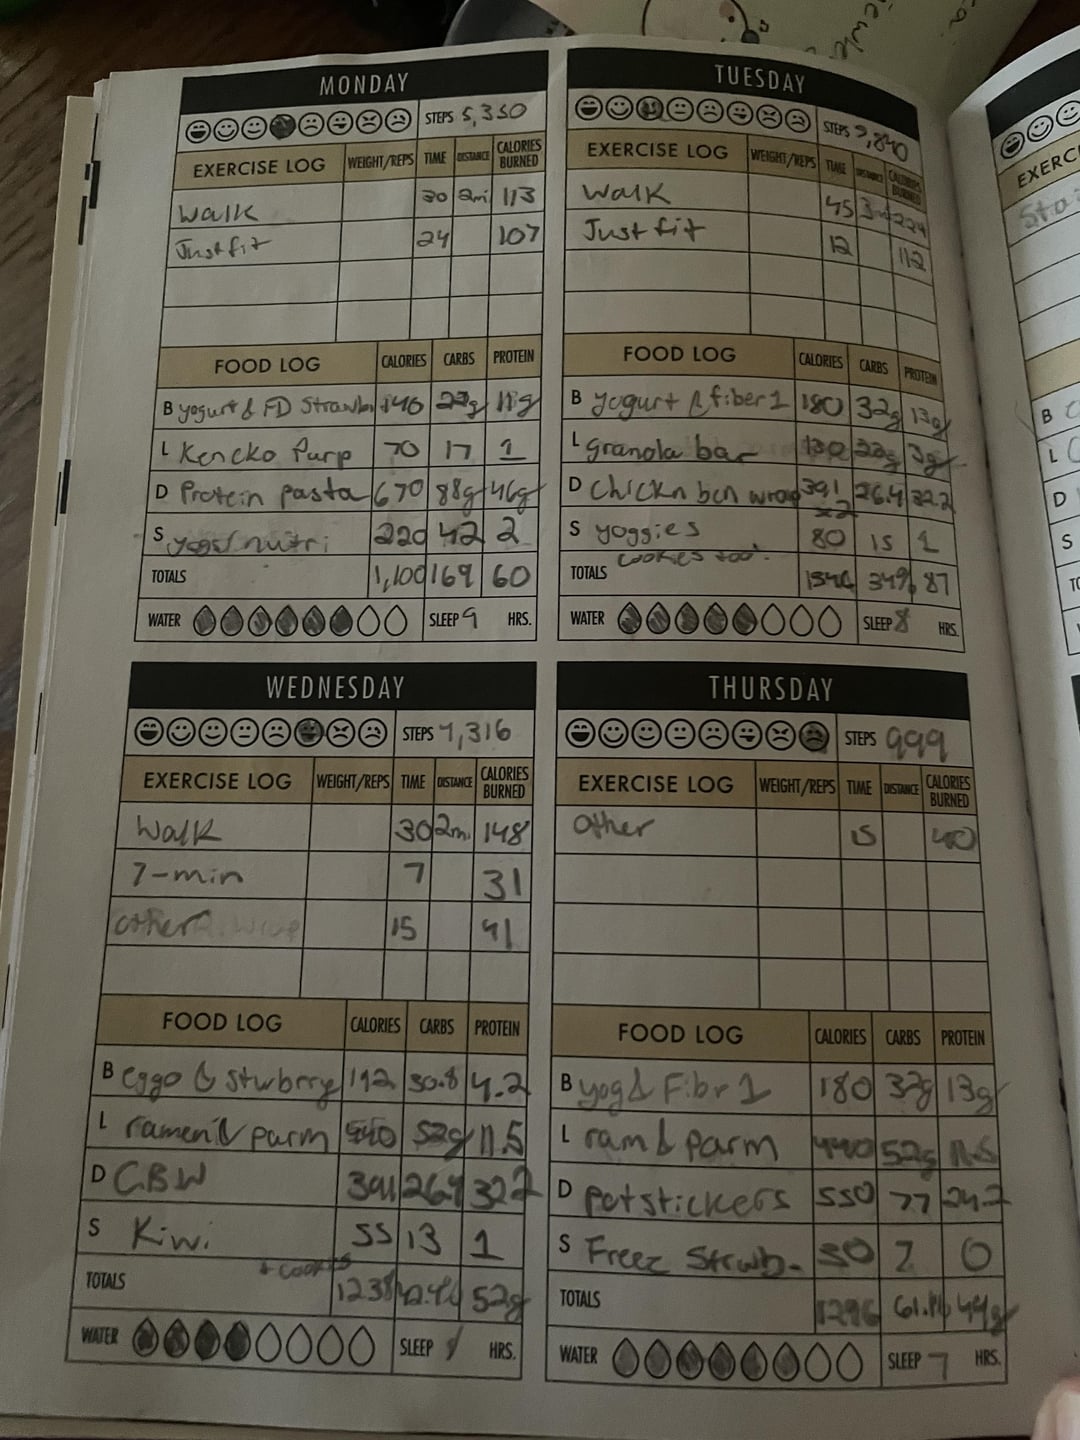 MONDAY
STEPS 5,350
EXERCISE LOG WEIGHT/REPS TIME DISTANCE CALORIES BURNED
Walk 30 2mi 113
Justfit 24 107
FOOD LOG CALORIES CARBS PROTEIN
B yogurt & FD Strawb 140 11g
L Kencko Purp 70 17 1
D Protein pasta 670 88g 46g
S nutri 220 42 2
TOTALS 1,100 169 60
WATER SLEEP 9 HRS.
TUESDAY
STEPS 9,840
EXERCISE LOG WEIGHT/REPS TIME DISTANCE CALORIES BURNED
Walk 45 3mi 224
Justfit 12 112
FOOD LOG CALORIES CARBS PROTEIN
B yogurt & fiber 1 180 32g 13g
L granola bar 130 22g 3g
D Chickn bcn wrap 391 x2 26.4 32.2
S yoggies 80 15 1
cookies too!
TOTALS 87
WATER SLEEP 8 HRS.
WEDNESDAY
STEPS 7,316
EXERCISE LOG WEIGHT/REPS TIME DISTANCE CALORIES BURNED
Walk 30 2mi 148
7-min 7 31
other 15 41
FOOD LOG CALORIES CARBS PROTEIN
B eggo & stwbrry 192 30.8 4.2
L ramen & parm 440 52g 11.5
D CBW 391 26.4 32.2
S Kiwi 55 13 1
+ cookies
TOTALS 1238 52g
WATER SLEEP HRS.
THURSDAY
STEPS 999
EXERCISE LOG WEIGHT/REPS TIME DISTANCE CALORIES BURNED
Other 15 40
FOOD LOG CALORIES CARBS PROTEIN
B yog & Fibr 1 180 32g 13g
L ram & parm 440 52g 11.5
D potstickers 550 77 24.2
S Freez Strwb. 30 7 0
TOTALS 1296 44g
WATER SLEEP 7 HRS.
B
L
D
S